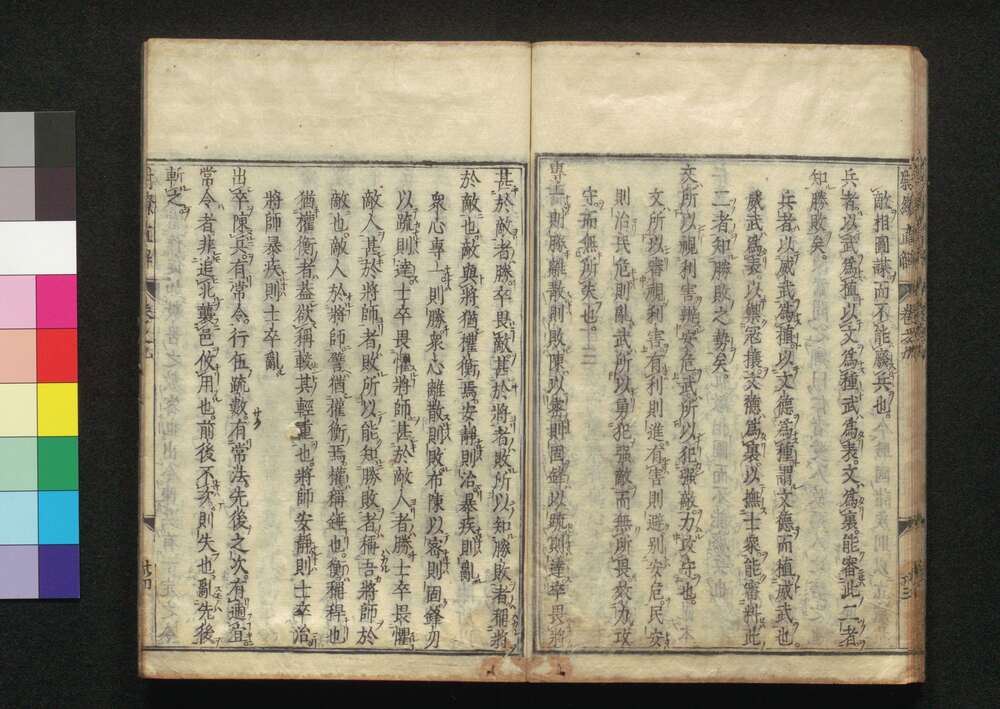 敵相圖謀而不能廢兵也
兵者以武爲植以文爲種武爲表文爲裏能審此二者
知勝敗矣
兵者以威武爲植以文德爲種謂文德而植威武也
威武爲表以禦冦攘文德爲裏以撫士衆能審料此
二者知勝敗之勢矣
文所以視利害辨安危武所以犯强敵力攻守也
文所以審視利害有利則進有害則避別安危民安
則治民危則亂武所以勇犯强敵而無所畏效力攻
守而無所失也
專一則勝離散則敗陳以密則固鋒以疏則達卒畏將
甚於敵者勝卒畏敵甚於將者敗所以知勝敗者稱將
於敵也敵與將猶權衡焉安靜則治暴疾則亂
衆心專一則勝衆心離散則敗布陳以密則固鋒刃
以疏則達士卒畏懼將師甚於敵人者勝士卒畏懼
敵人甚於將師者敗所以能知勝敗者稱吾將師於
敵也敵人於將師譬猶權衡焉權稱錘也衡稱稈也
猶權衡者葢欲稱較其輕重也將師安靜則士卒治
將師暴疾則士卒亂
出卒陳兵有常令行伍疏數有常法先後之次有適宜
常令者非追北襲邑攸用也前後不次則失也亂先後
斬之